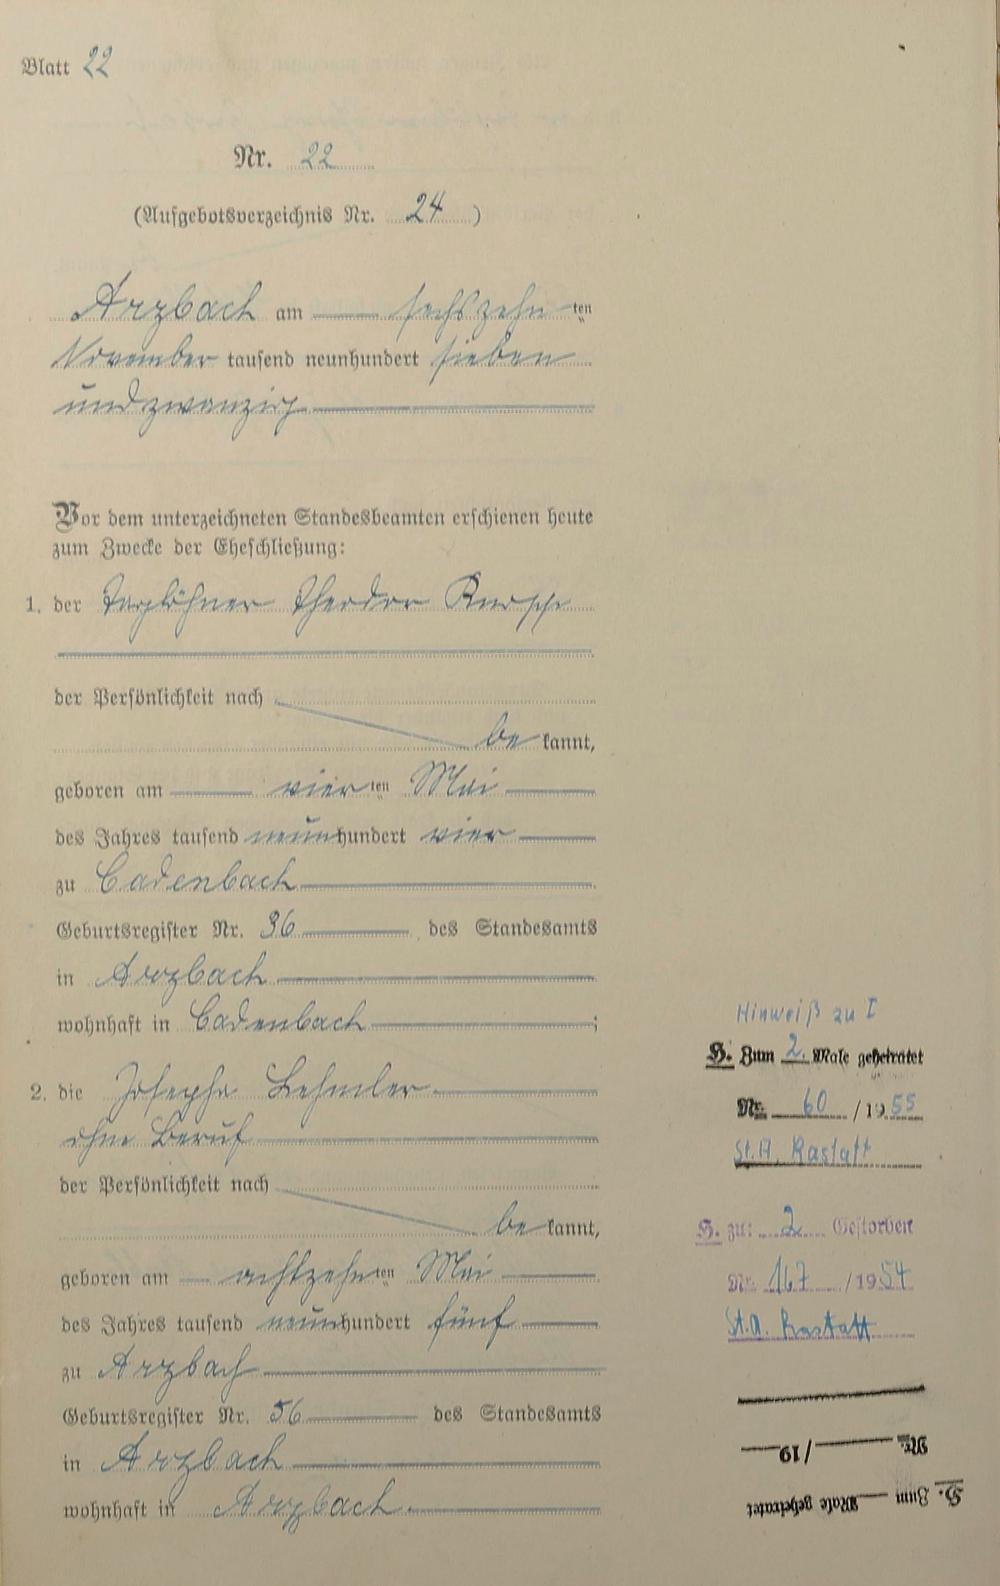 Blatt 22
Nr. 22
(Aufgebotsverzeichnis Nr. 24)
Arzbach am sechszehnten
November tausend neunhundert sieben
undzwanzig
Vor dem unterzeichneten Standesbeamten erschienen heute
zum Zwecke der Eheschließung:
1. der Taglöhner Theodor
der Persönlichkeit nach
be kannt,
geboren am vierten Mai
des Jahres tausend neunhundert vier
zu Cadenbach
Geburtsregister Nr. 36 des Standesamts
in Arzbach
wohnhaft in Cadenbach ;
2. die Josepha Lehmler
ohne Beruf
der Persönlichkeit nach
be kannt,
geboren am achtzehnten Mai
des Jahres tausend neunhundert fünf
zu Arzbach
Geburtsregister Nr. 56 des Standesamts
in Arzbach
wohnhaft in Arzbach
Hinweiß zu I
H. Zum 2. Male geheiratet
Nr. 60 / 1955
St.A. Rastatt
H. zu: 2 Gestorben
Nr. 167 / 1954
St.A. Rastatt
H. Zum Male geheiratet
Nr. / 19